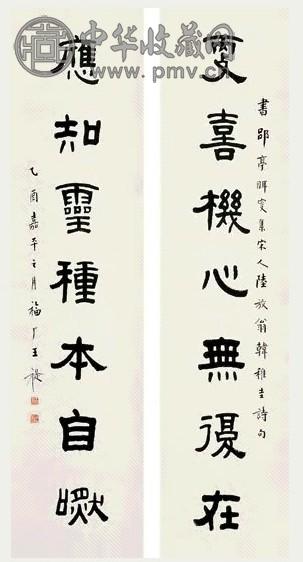 中华收藏网
www.pmv.cn
更喜機心無復在
書郘亭眲叟集宋人陸放翁韓稚圭詩句
應知靈種本自
乙酉嘉平之月福厂王禔